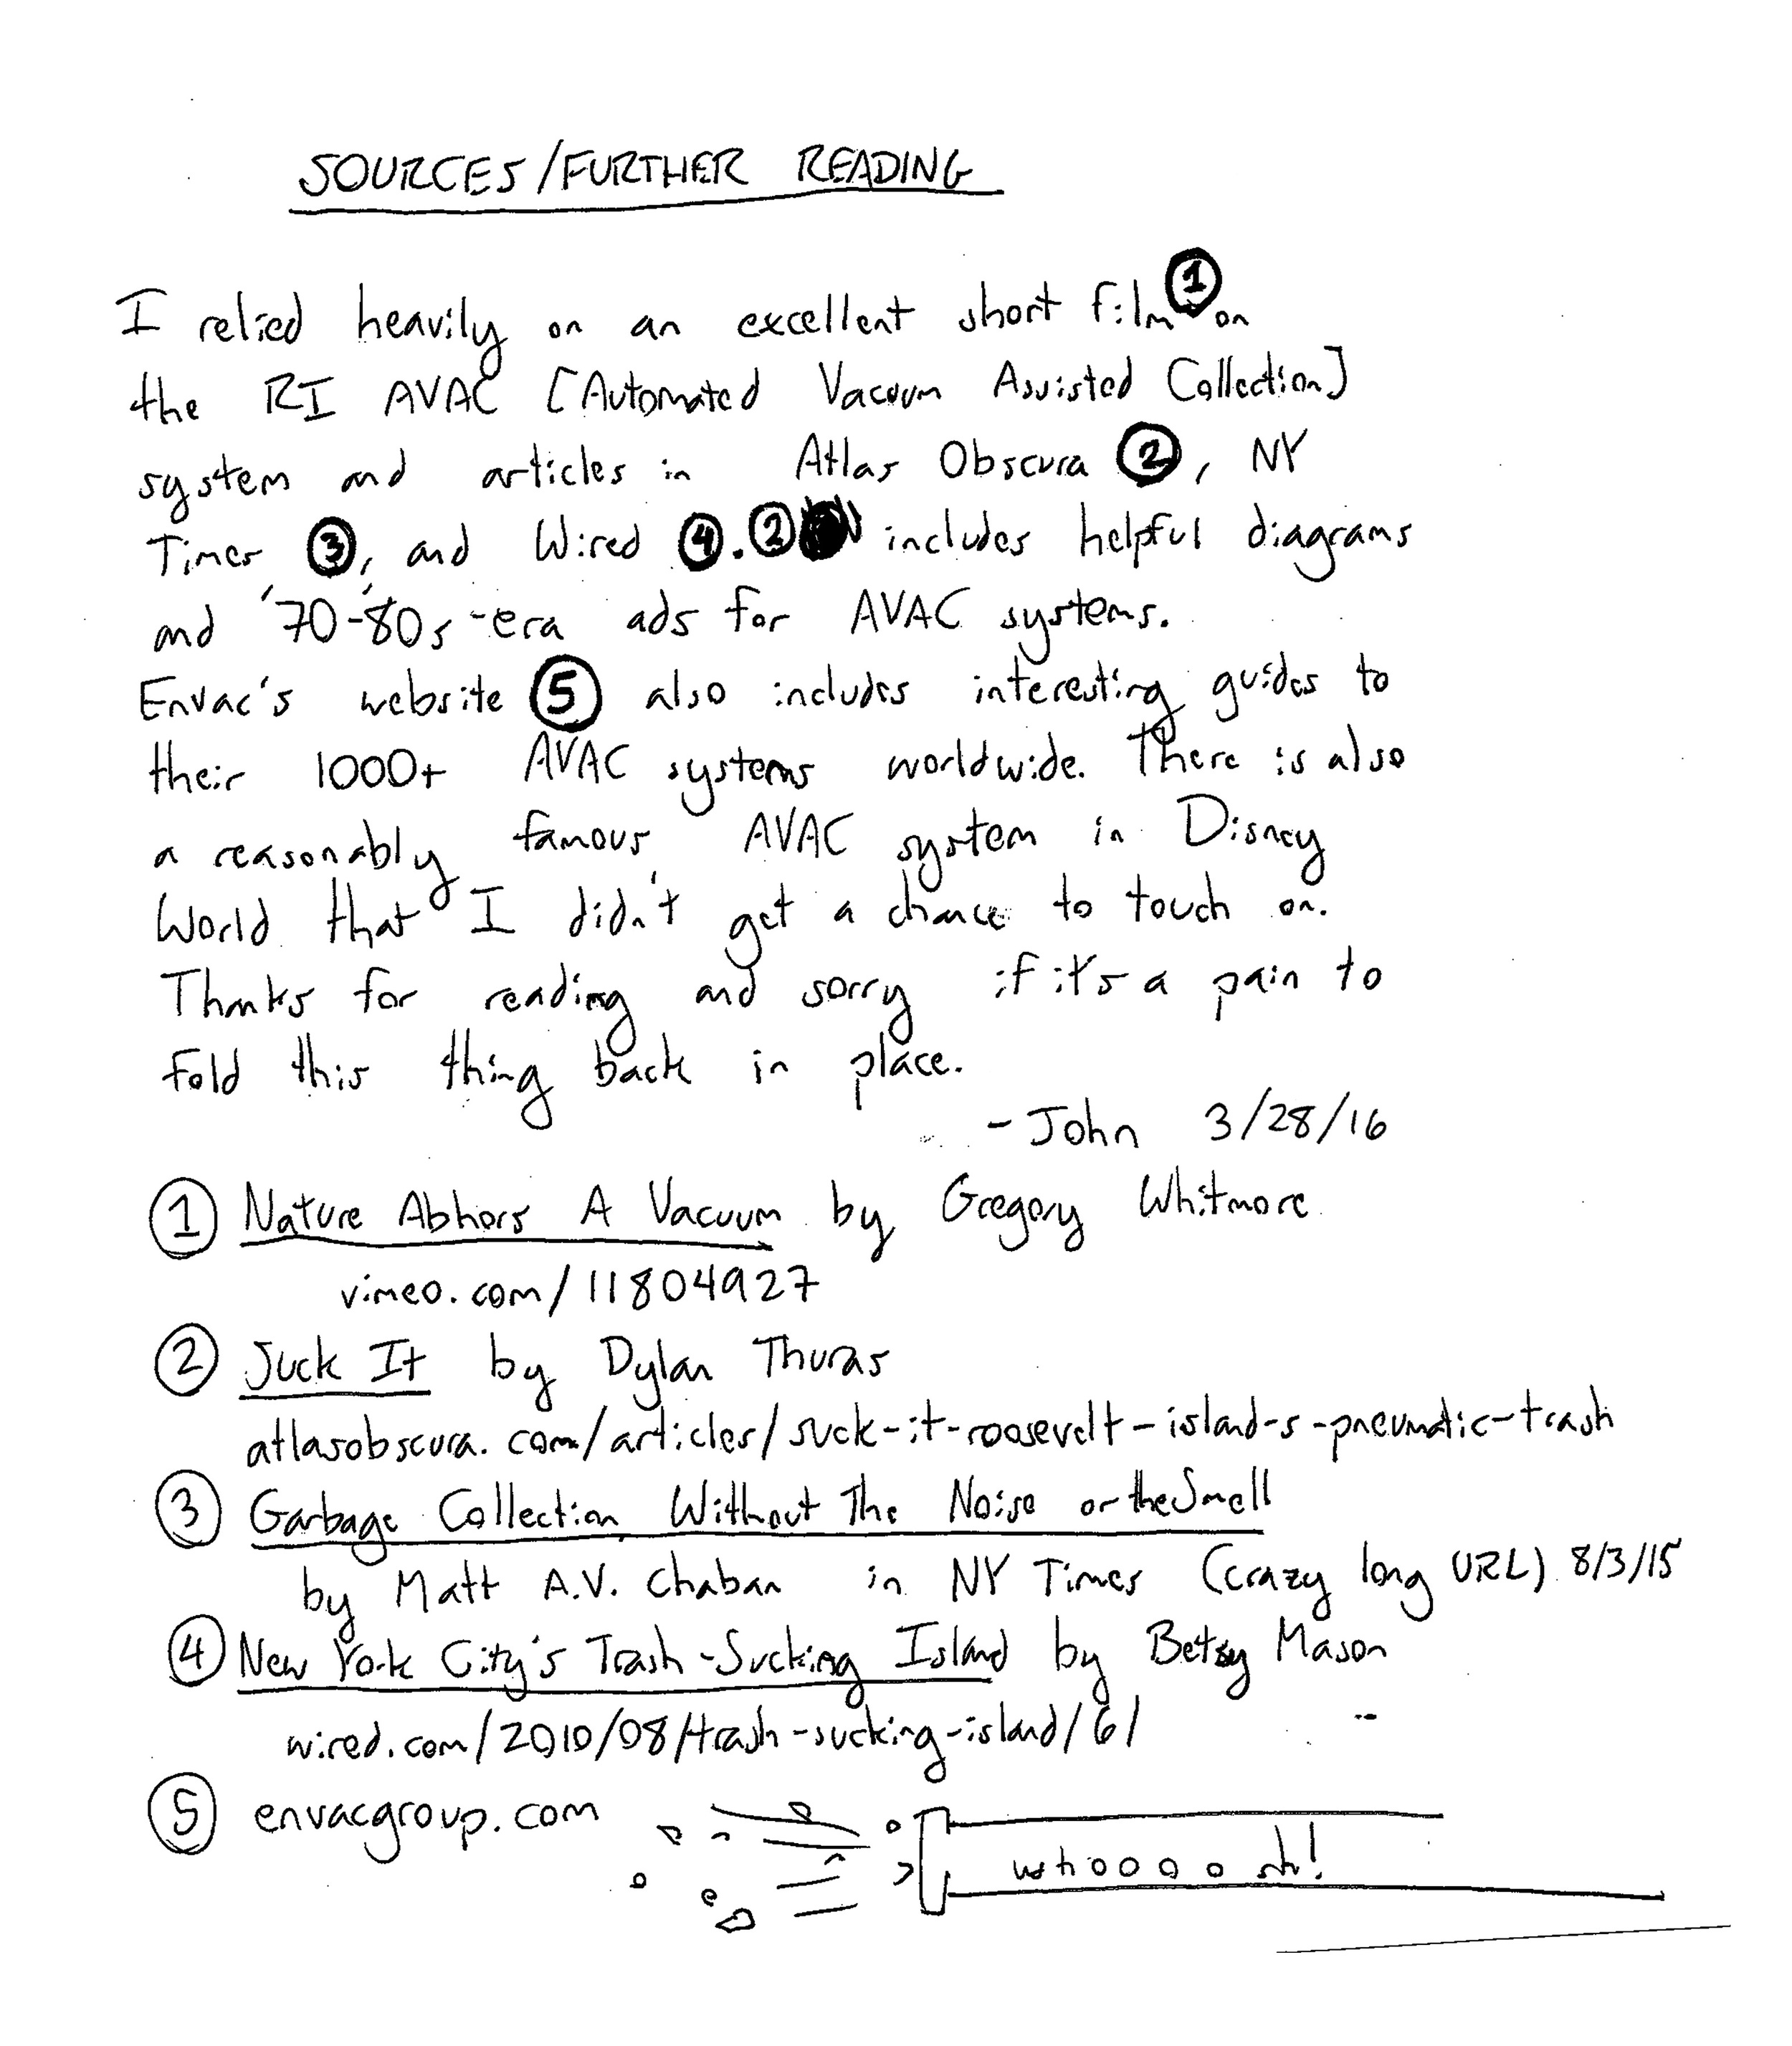 SOURCES/FURTHER READING
I relied heavily on an excellent short film ① on
the RI AVAC [Automated Vacuum Assisted Collection]
system and articles in Atlas Obscura ②, NY
Times ③, and Wired ④. ② includes helpful diagrams
and '70-'80s-era ads for AVAC systems.
Envac's website ⑤ also includes interesting guides to
their 1000+ AVAC systems worldwide. There is also
a reasonably famous AVAC system in Disney
World that I didn't get a chance to touch on.
Thanks for reading and sorry if it's a pain to
fold this thing back in place.
- John 3/28/16
① Nature Abhors A Vacuum by Gregory Whitmore
vimeo.com/11804927
② Suck It by Dylan Thuras
atlasobscura.com/articles/suck-it-roosevelt-island-s-pneumatic-trash
③ Garbage Collection Without The Noise or the Smell
by Matt A.V. Chaban in NY Times (crazy long URL) 8/3/15
④ New York City's Trash-Sucking Island by Betsy Mason
wired.com/2010/08/trash-sucking-island/6/
⑤ envacgroup.com
whoooosh!